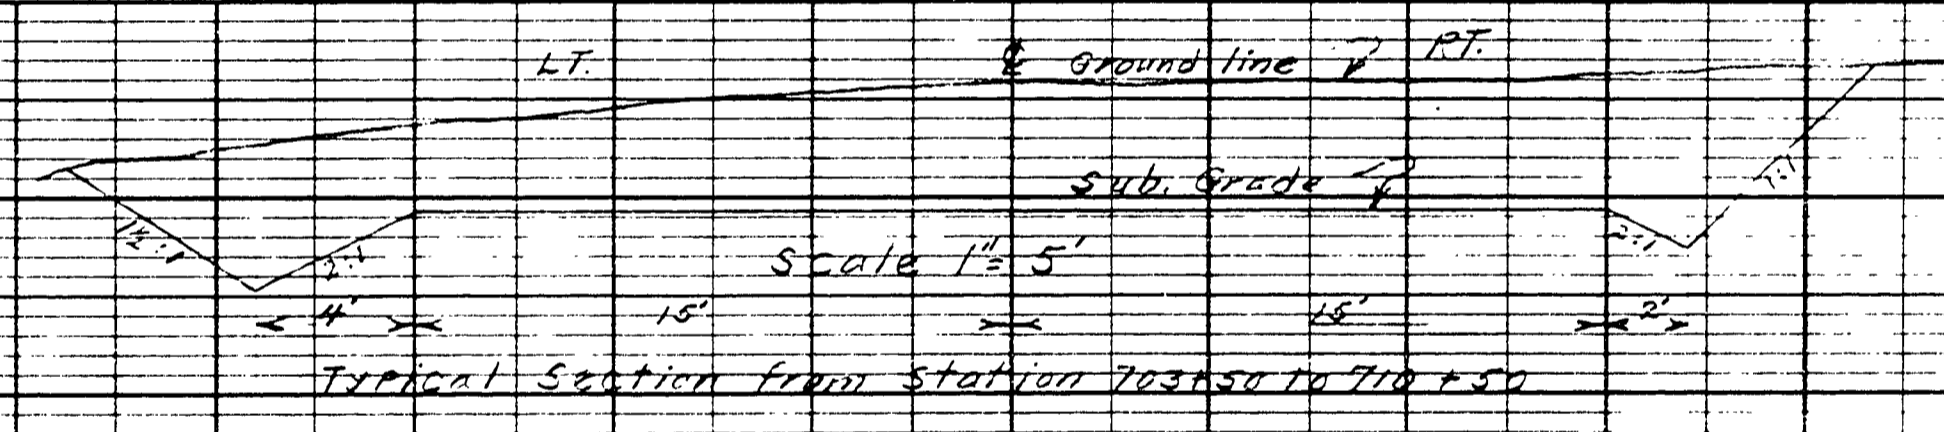 LT. ℄ Ground line RT.
Sub. Grade
1½:1 2:1 Scale 1"= 5' 2:1 1:1
4' 15' 15' 2'
Typical Section from Station 703+50 to 710+50